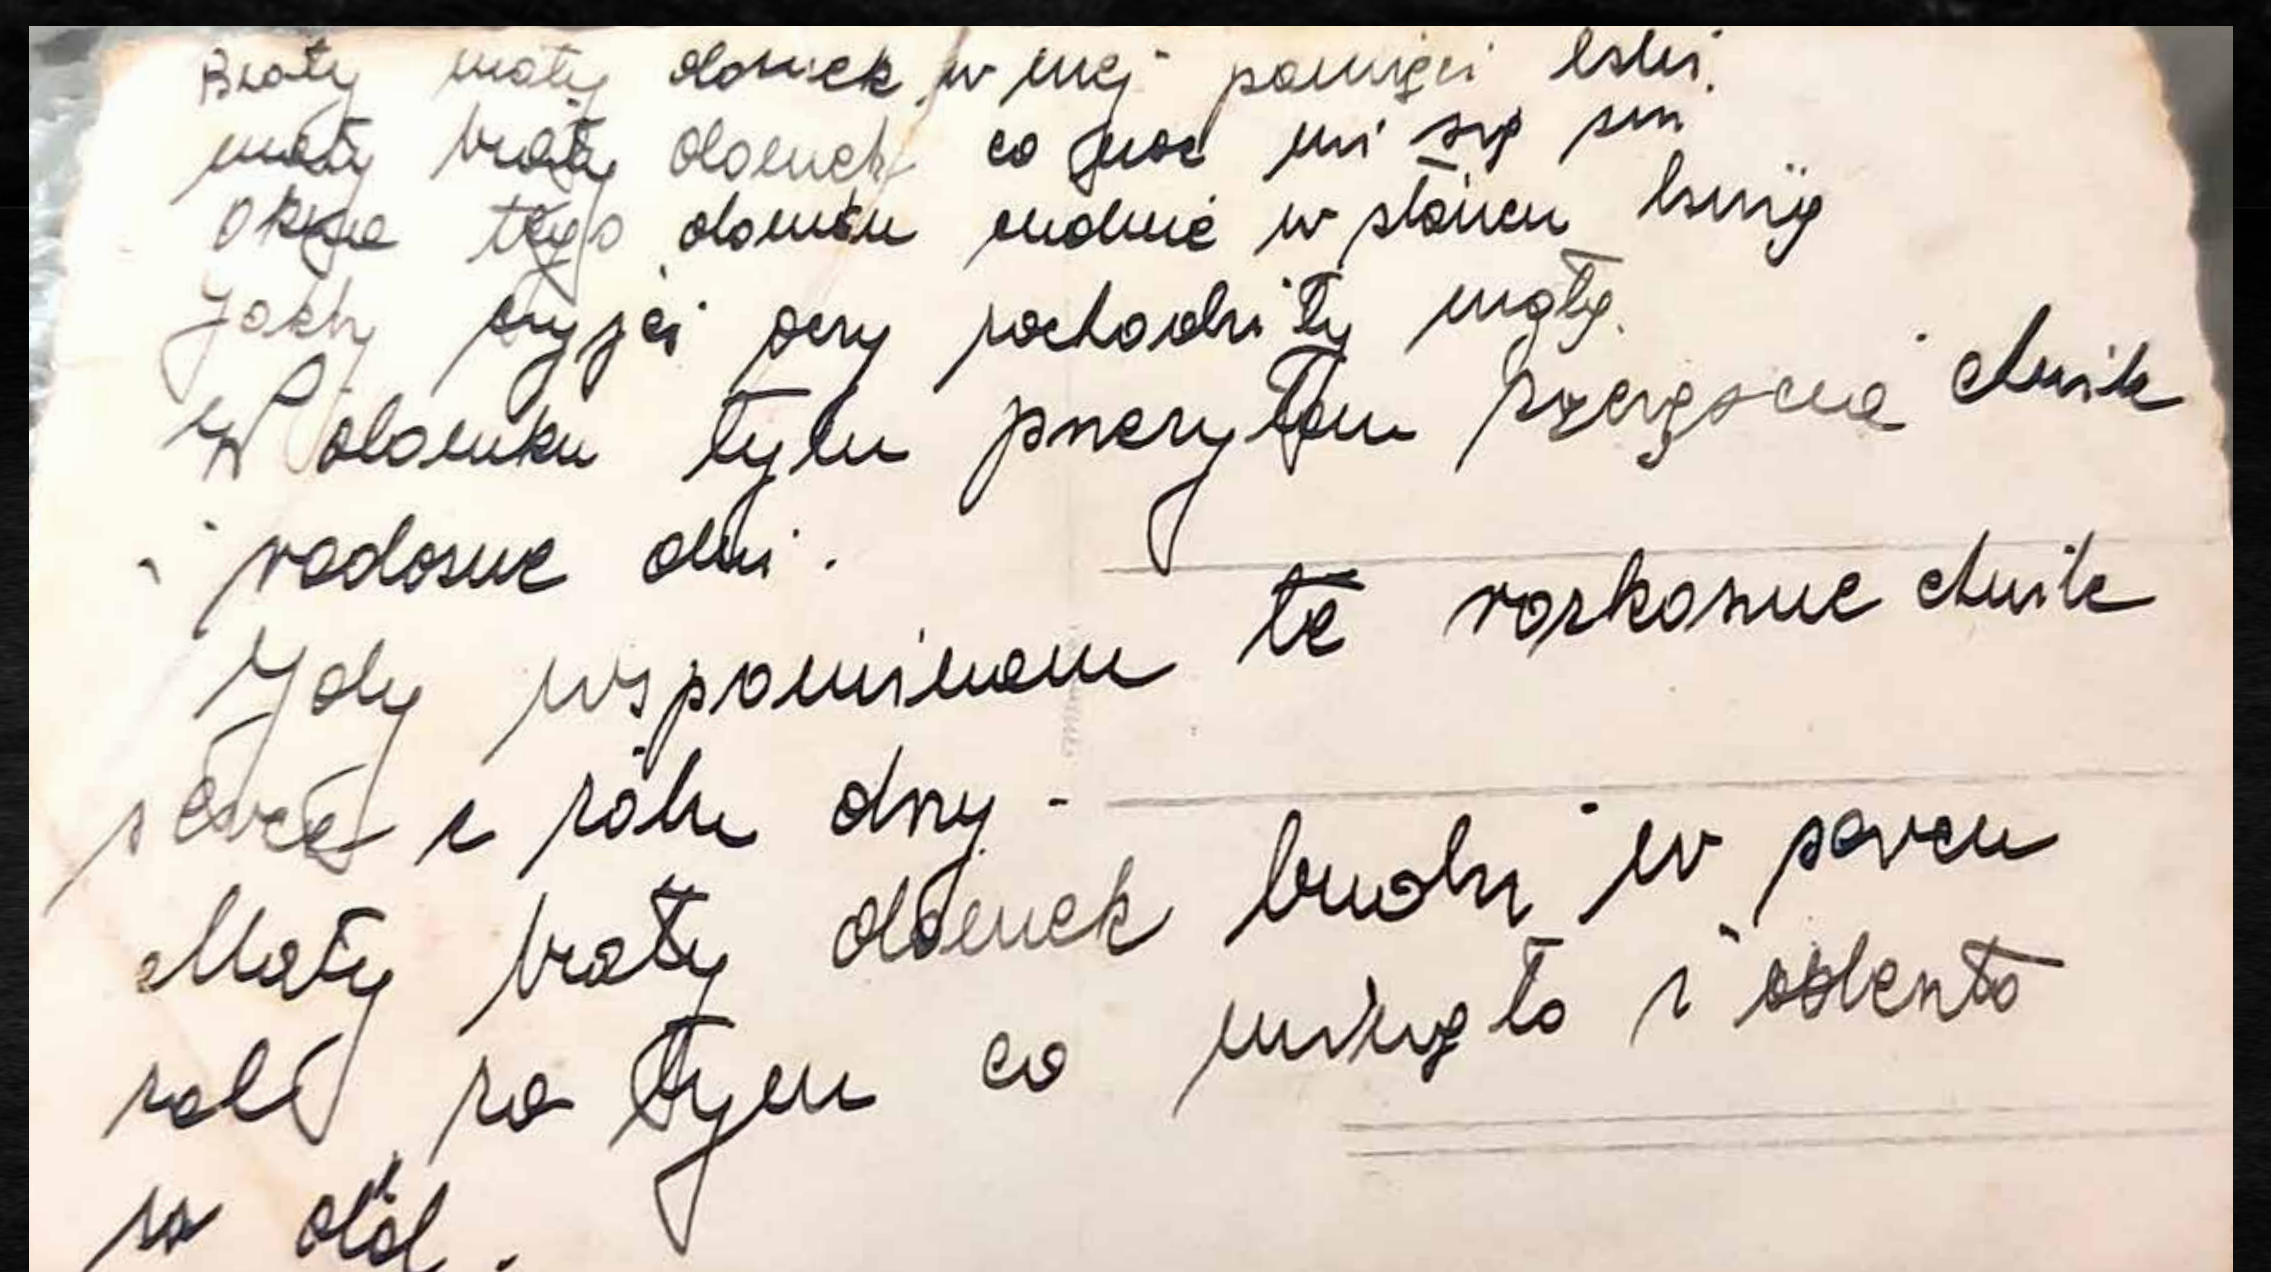 Biały mały domek w mej pamięci lśni.
mały biały domek co noc mi się śni
Okna tego domku cudnie w słońcu lśnią
Jakby czyjeś oczy zachodziły mgłą.
W domku tylu przeżyłam szczęsne chwile
i radosne dni.
Gdy wspominam te rozkoszne chwile
serce z żalu drży -
Mały biały domek budzi w sercu
żal za tym co minęło i odeszło
w dal.